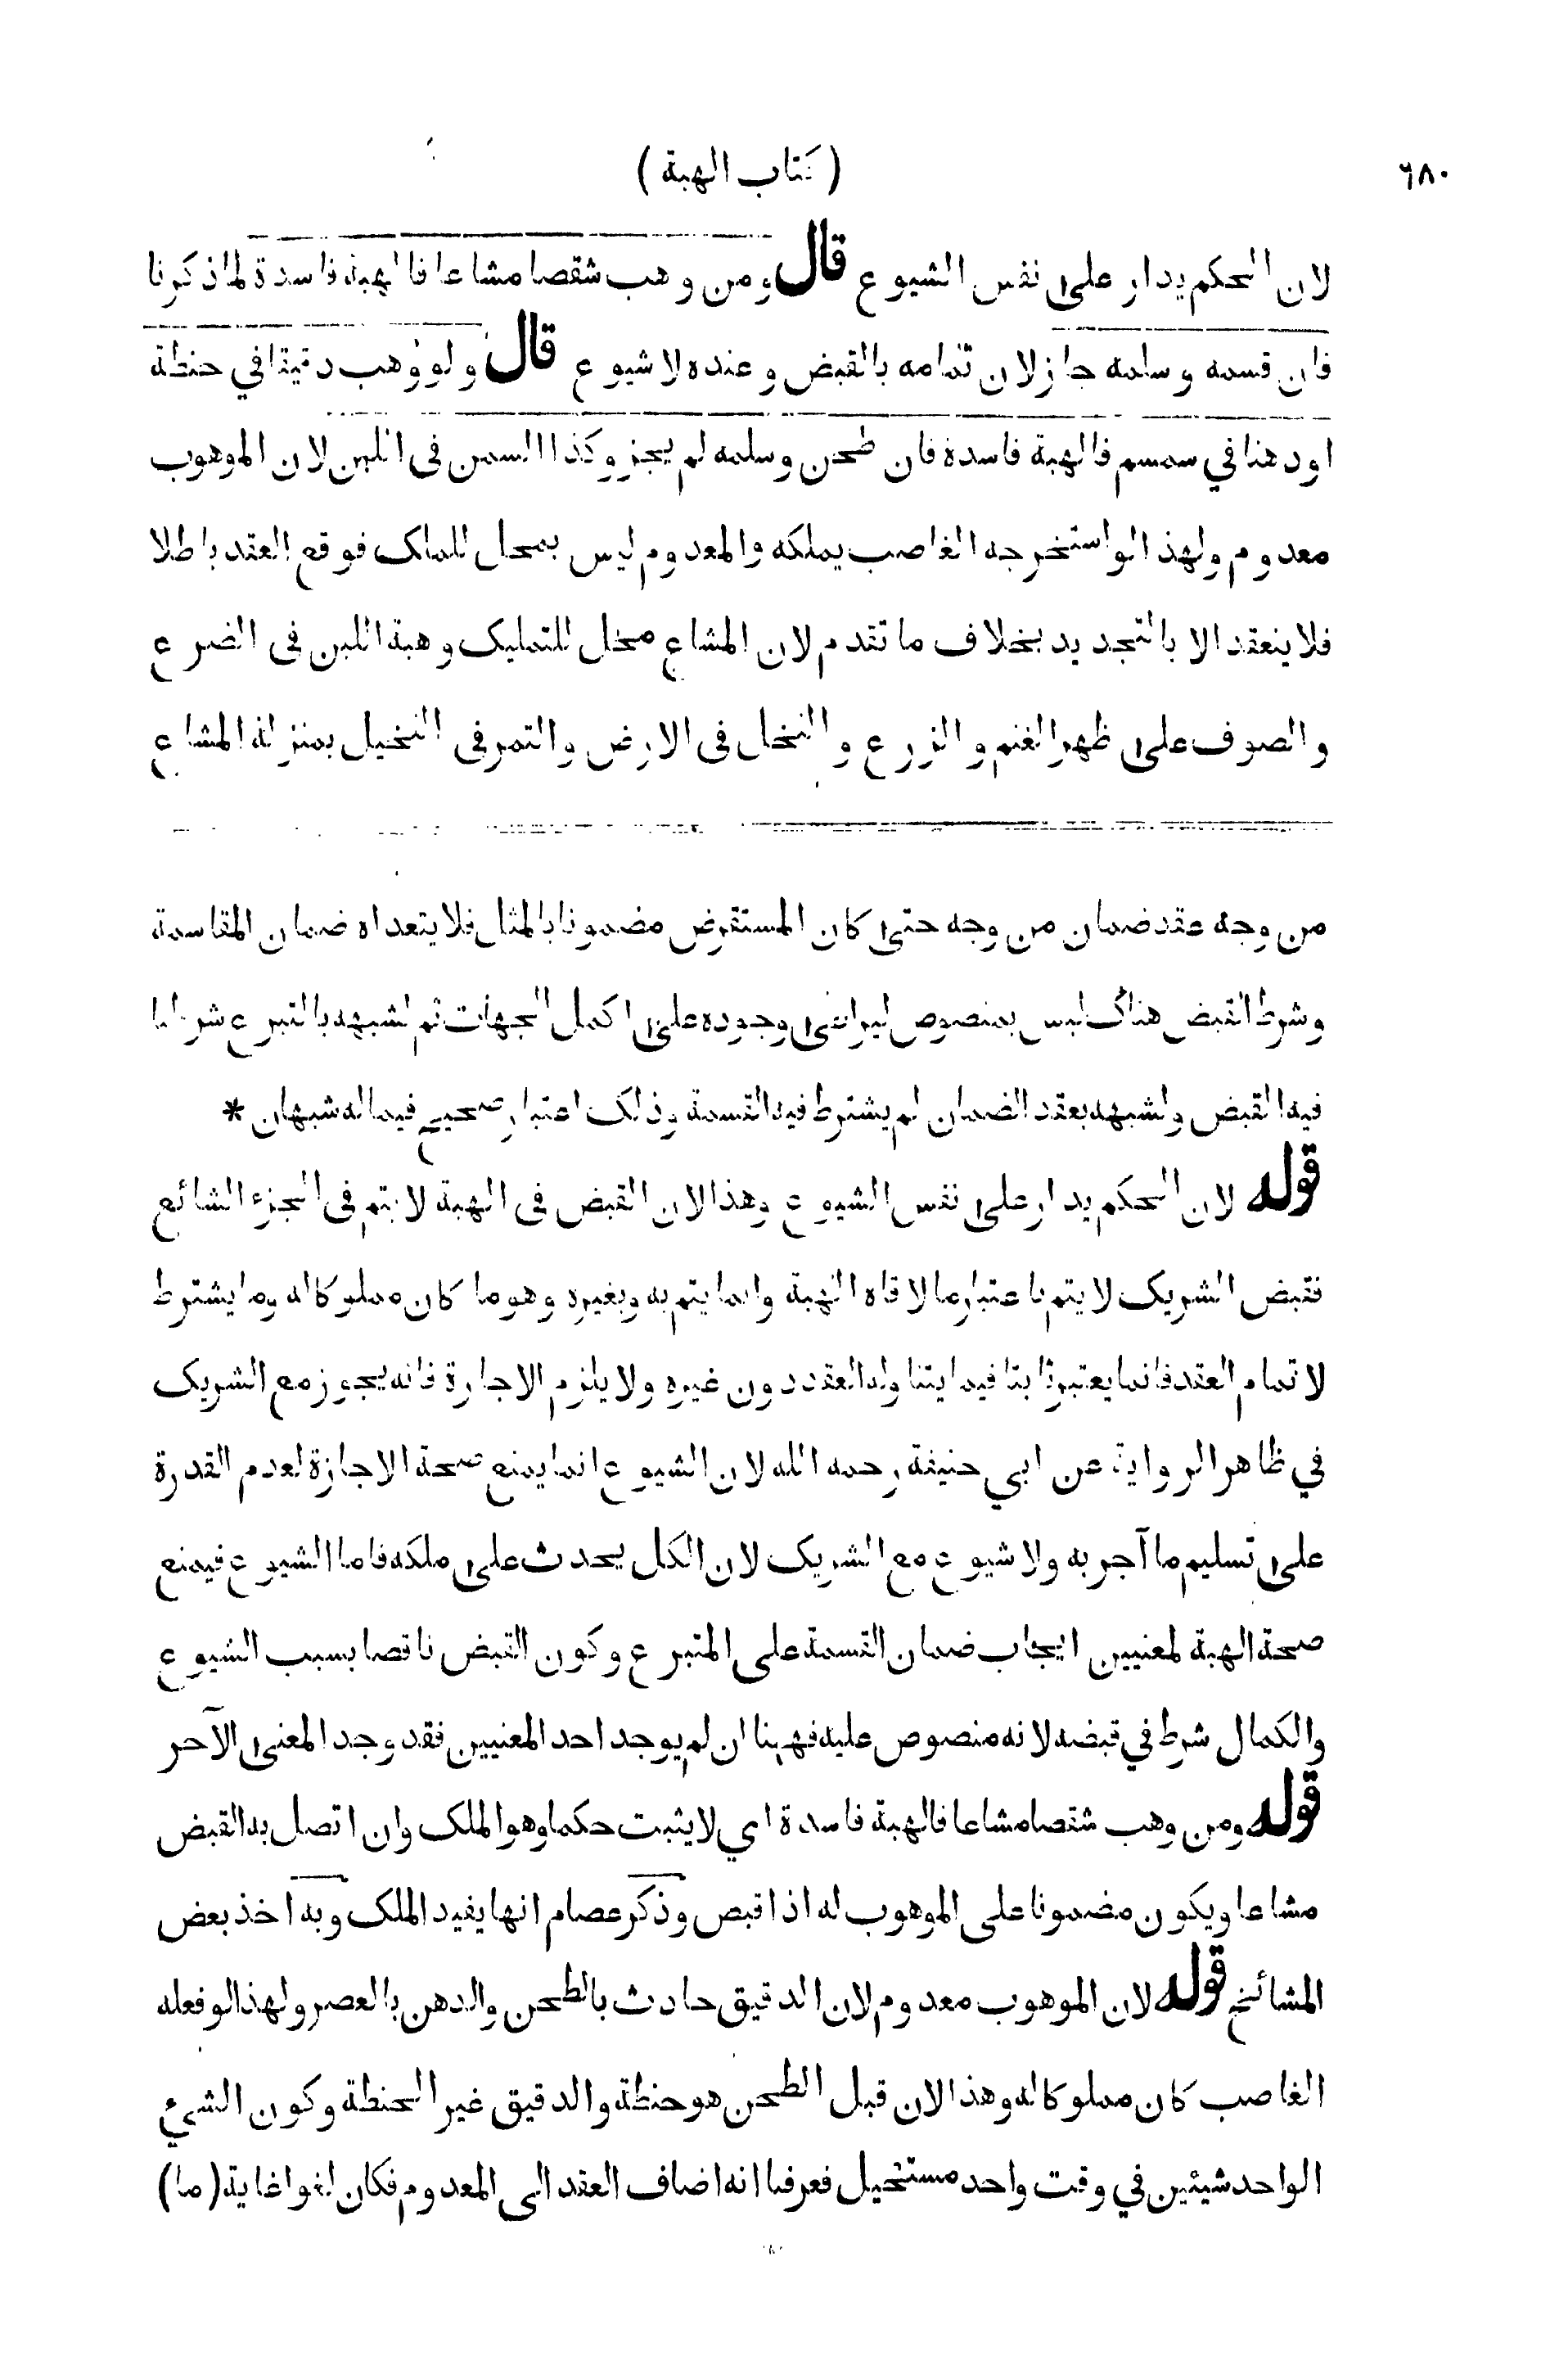 ٦٨٠
( كتاب الهبة )
لان الحكم يدار على نفس الشيوع قال ومن وهب شقصا مشاعا فالهبة فاسدة لما ذكرنا
فان قسمه وسلمه جاز لان تمامه بالقبض وعنده لا شيوع قال ولو وهب دقيقا في حنطة
او دهنا في سمسم فالهبة فاسدة فان طحن وسلمه لم يجز وكذا السمن في اللبن لان الموهوب
معدوم ولهذا لو استخرجه الغاصب يملكه والمعدوم ليس بمحل للملك فوقع العقد باطلا
فلا ينعقد الا بالتجديد بخلاف ما تقدم لان المشاع محل للتمليك وهبة اللبن في الضرع
والصوف على ظهر الغنم والزرع والنخل في الارض والتمر في النخيل بمنزلة المشاع
من وجه عقد ضمان من وجه حتى كان المستقرض مضمونا بالمثل فلا يتعداه ضمان المقاسمة
وشرط القبض هناك ليس بمنصوص ليراعى وجوده على اكمل الجهات ثم لشبهه بالتبرع شرطنا
فيه القبض ولشبهه بعقد الضمان لم يشترط فيه القسمة وذلك اعتبار صحيح فيما له شبهان *
قوله لان الحكم يدار على نفس الشيوع وهذا لان القبض في الهبة لا يتم في الجزء الشائع
فقبض الشريك لا يتم باعتبار ما لاقاه الهبة وانما يتم به وبغيره وهو ما كان مملوكا له وما يشترط
لاتمام العقد فانما يعتبر ثابتا فيما يتناوله العقد دون غيره ولا يلزم الاجارة فانه يجوز مع الشريك
في ظاهر الرواية عن ابي حنيفة رحمه الله لان الشيوع انما يمنع صحة الاجازة لعدم القدرة
على تسليم ما آجر به ولا شيوع مع الشريك لان الكل يحدث على ملكه فاما الشيوع فيمنع
صحة الهبة لمعنيين ايجاب ضمان القسمة على المتبرع وكون القبض ناقصا بسبب الشيوع
والكمال شرط في قبضه لانه منصوص عليه فههنا ان لم يوجد احد المعنيين فقد وجد المعنى الآخر
قوله ومن وهب شقصا مشاعا فالهبة فاسدة اي لا يثبت حكما وهو الملك وان اتصل به القبض
مشاعا ويكون مضمونا على الموهوب له اذا قبض وذكر عصام انها يفيد الملك وبه اخذ بعض
المشائخ قوله لان الموهوب معدوم لان الدقيق حادث بالطحن والدهن بالعصر ولهذا لو فعله
الغاصب كان مملوكا له وهذا لان قبل الطحن هو حنطة والدقيق غير الحنطة وكون الشيئ
الواحد شيئين في وقت واحد مستحيل فعرفنا انه اضاف العقد الى المعدوم فكان لغوا غاية ( ما )